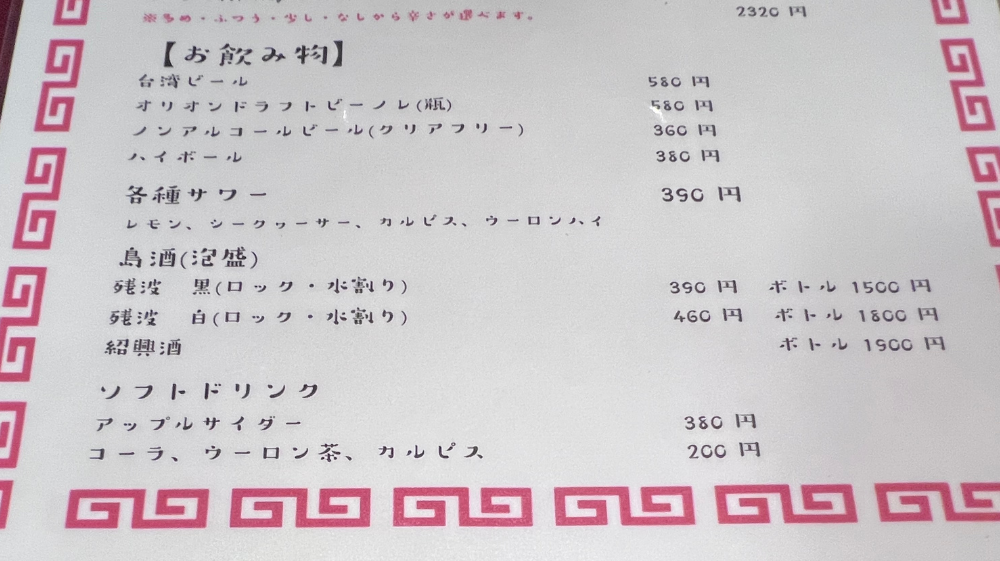 ※多め・ふつう・少し・なしから辛さが選べます。 2320 円
【お飲み物】
台湾ビール 580 円
オリオンドラフトビーノレ(瓶) 580 円
ノンアルコールビール(クリアフリー) 360 円
ハイボール 380 円
各種サワー 390 円
レモン、シークヮーサー、カルピス、ウーロンハイ
島酒(泡盛)
残波 黒(ロック・水割り) 390 円 ボトル 1500 円
残波 白(ロック・水割り) 460 円 ボトル 1800 円
紹興酒 ボトル 1900 円
ソフトドリンク
アップルサイダー 380 円
コーラ、ウーロン茶、カルピス 200 円